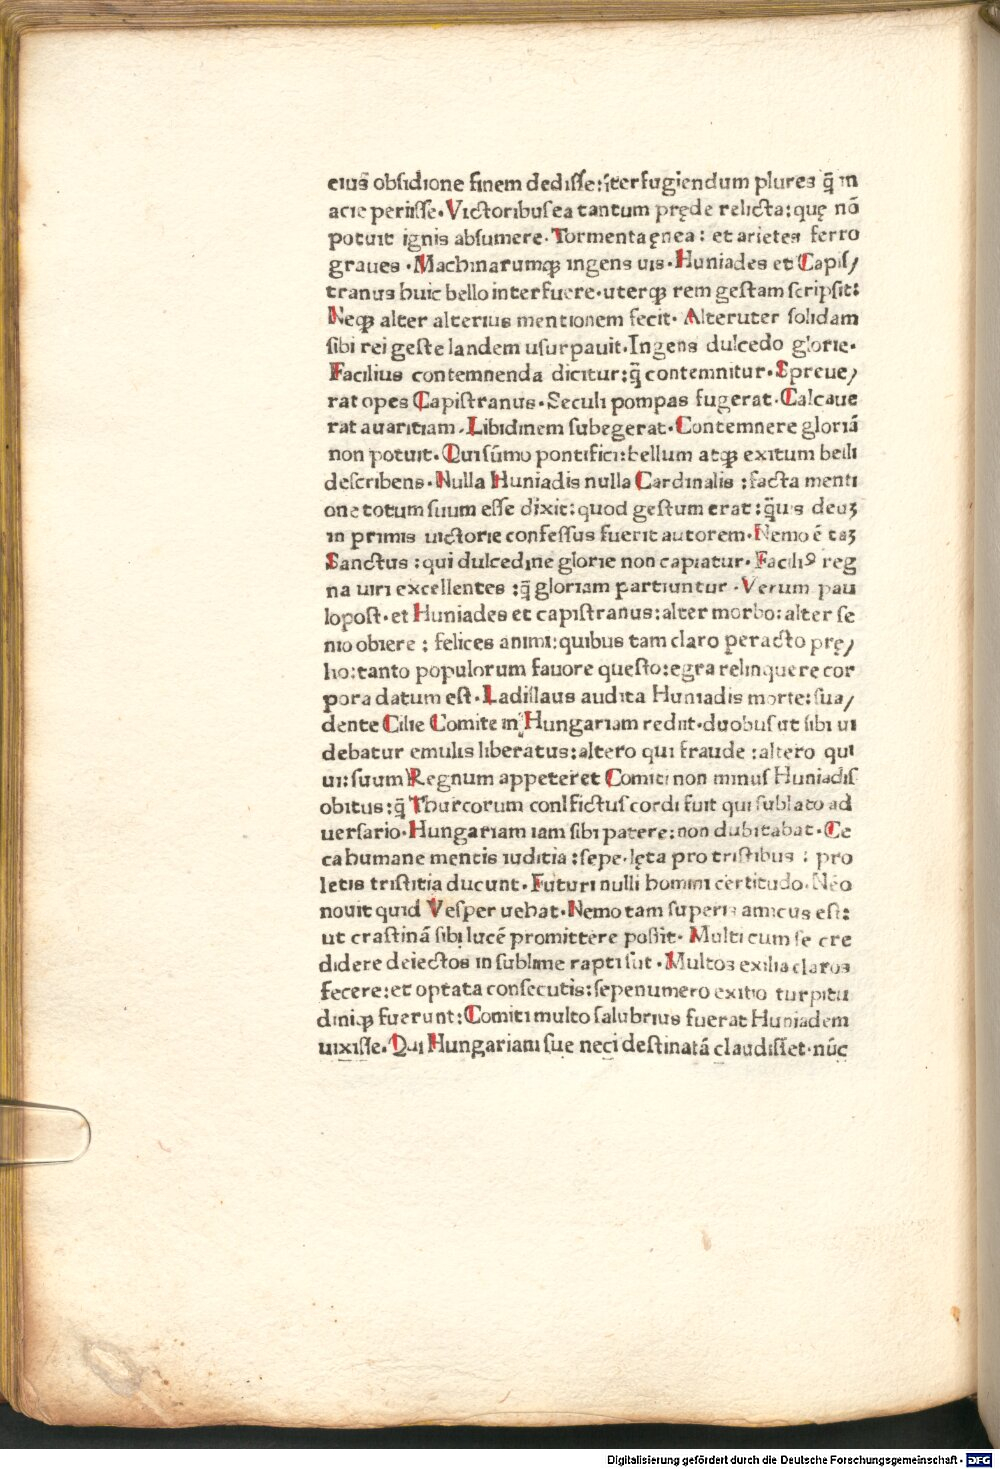 eius̃ obsidione finem dedisse: ĩter fugiendum plures q̃ in
acie periisse. Victoribus ea tantum pręde relicta: quę nõ
potuit ignis absumere. Tormenta ęnea: et arietes ferro
graues. Machinarumqꝫ ingens uis. Huniades et Capis/
tranus huic bello interfuere. uterqꝫ rem gestam scripsit:
Neqꝫ alter alterius mentionem fecit. Alteruter solidam
sibi rei geste landem usurpauit. Ingens dulcedo glorie.
Facilius contemnenda dicitur: q̃ contemnitur. Spreue/
rat opes Capistranus. Seculi pompas fugerat. Calcaue
rat auaritiam. Libidinem subegerat. Contemnere gloriã
non potuit. Qui sũmo pontifici: bellum atqꝫ exitum belli
describens. Nulla Huniadis nulla Cardinalis: facta menti
one totum suum esse dixit: quod gestum erat: q̃uis deuꝫ
in primis uictorie confessus fuerit autorem. Nemo ẽ taꝫ
Sanctus: qui dulcedine glorie non capiatur. Faciliꝰ reg
na uiri excellentes: q̃ gloriam partiuntur. Verum pau
lopost. et Huniades et capistranus: alter morbo: alter se
nio obiere: felices animi: quibus tam claro peracto prę/
lio: tanto populorum fauore questo: egra relinquere cor
pora datum est. Ladislaus audita Huniadis morte: sua/
dente Cilie Comite in Hungariam rediit. duobus ut sibi ui
debatur emulis liberatus: altero qui fraude: altero qui
ui: suum Regnum appeteret Comiti non minus Huniadis
obitus: q̃ Thurcorum conlfictus cordi fuit qui sublato ad
uersario. Hungariam iam sibi patere: non dubitabat. Ce
ca humane mentis iuditia: sepe. lęta pro tristibus: pro
letis tristitia ducunt. Futuri nulli homini certitudo. Neo
nouit quid Vesper uehat. Nemo tam superis amicus est:
ut crastinã sibi lucẽ promittere possit. Multi cum se cre
didere deiectos in sublime rapti sut. Multos exilia claros
fecere: et optata consecutis: sepenumero exitio turpitu
diniqꝫ fuerunt: Comiti multo salubrius fuerat Huniadem
uixisse. Qui Hungariam sue neci destinatã claudisset. nũc
Digitalisierung gefördert durch die Deutsche Forschungsgemeinschaft - DFG